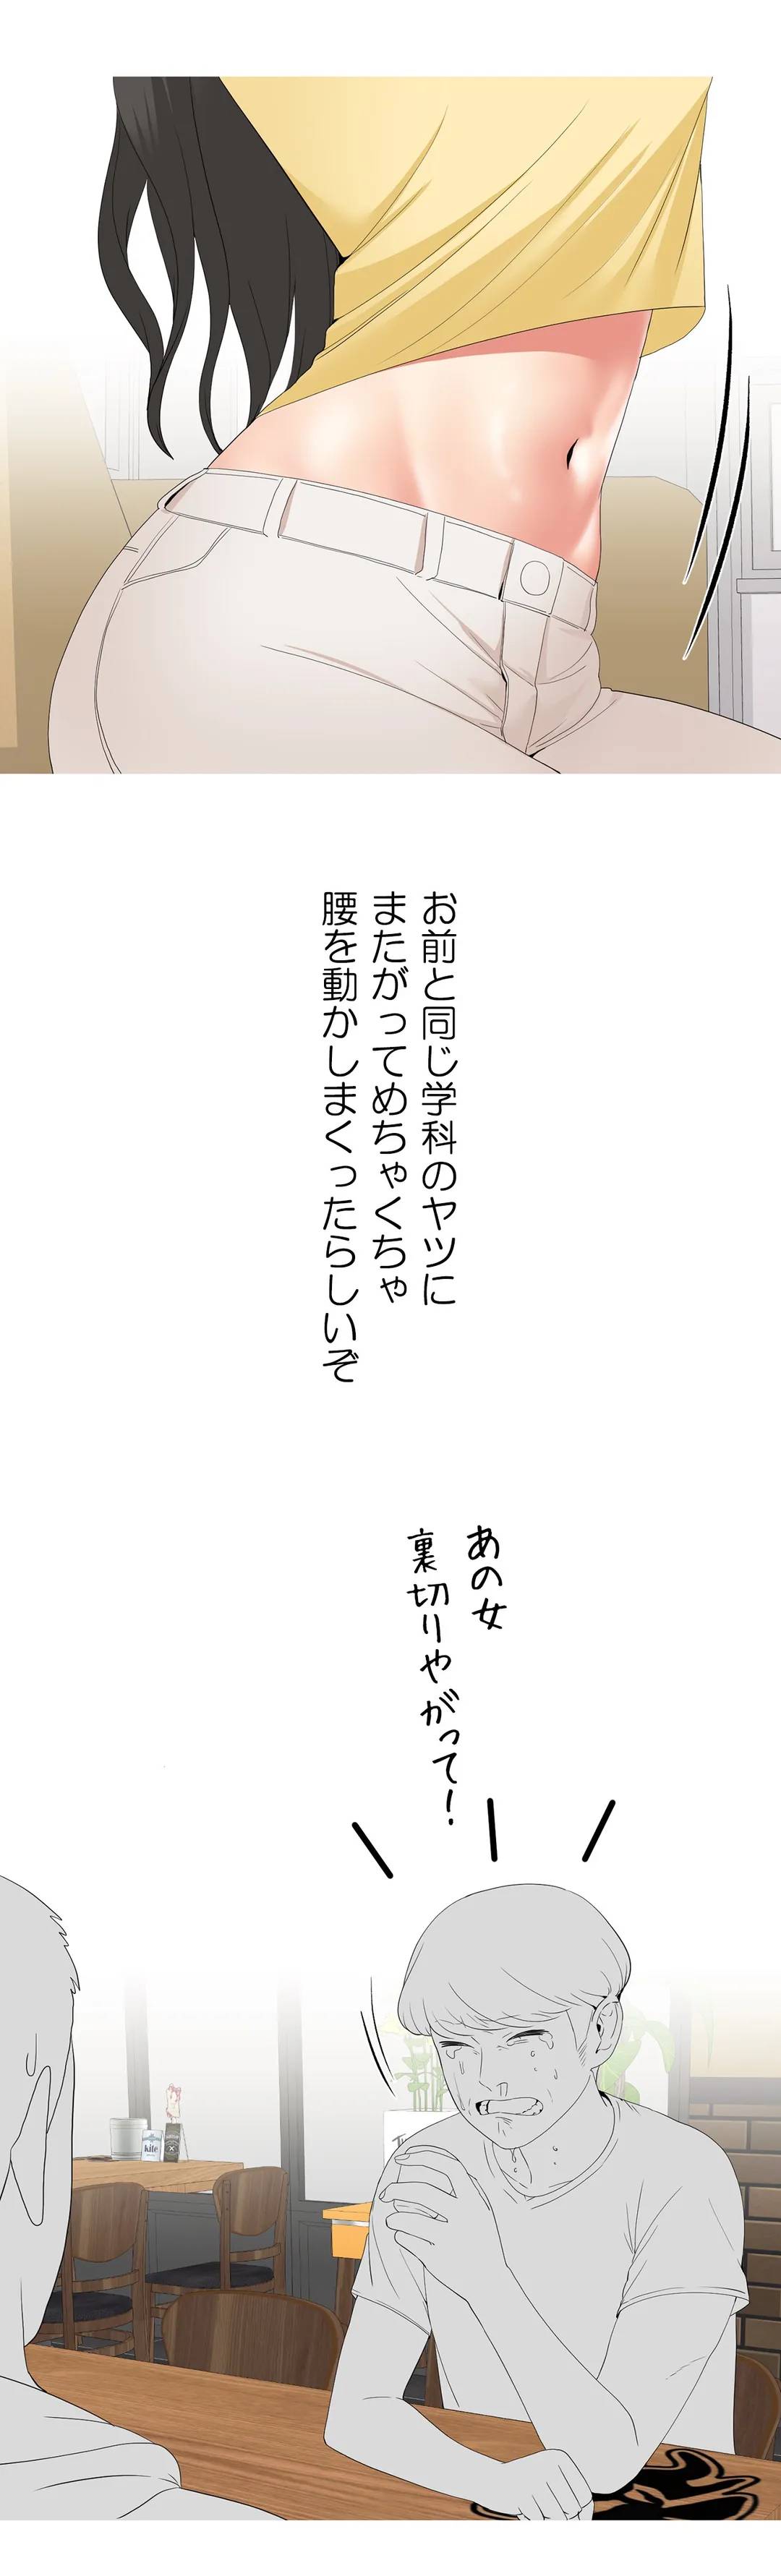 お前と同じ学科のヤツに
またがってめちゃくちゃ
腰を動かしまくったらしいぞ
あの女
裏切りやがって!
kite